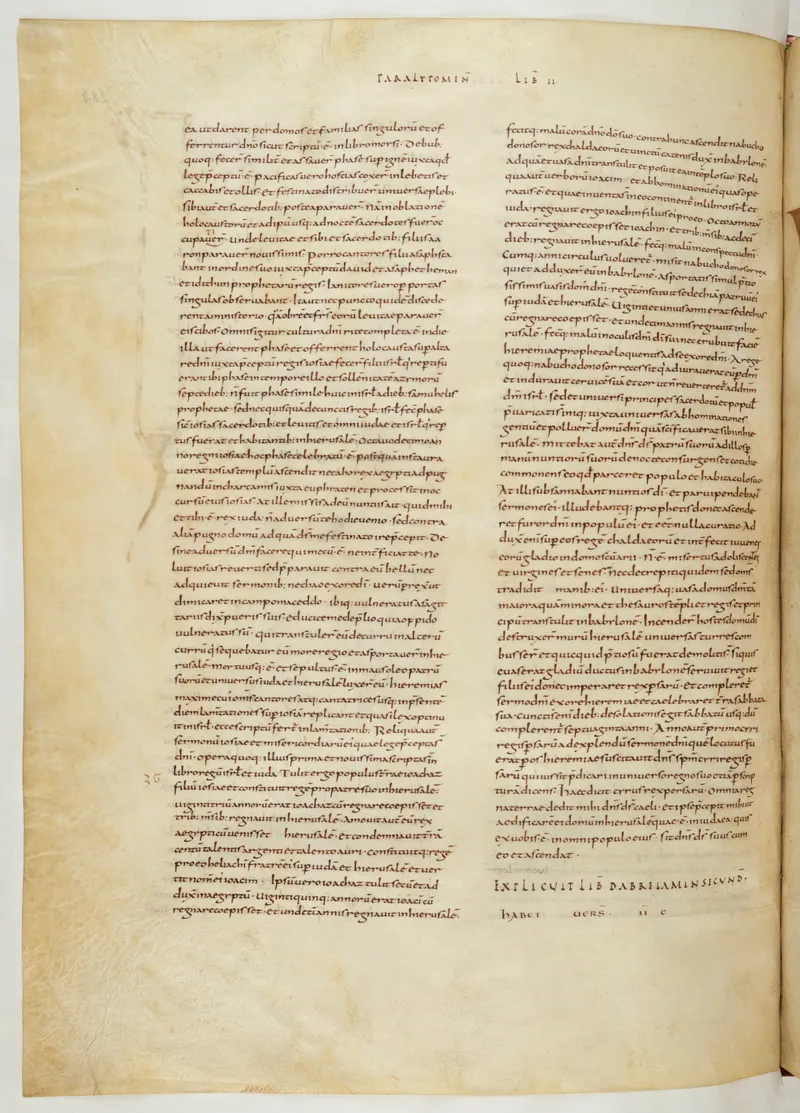 PARALYPOMIN̄ LIB̄ II
ea ut darent per domos et familias singulorū et of
ferrentur dn̄o sicut scriptū ē in libro mosi. De bub:
quoq: fecer̄ similit̄ et assauer̄ phase sup igne iuxta qd̄
lege p̄ceptū ē pacificas uero hostias coxer̄ in lebetis et
caccabis et ollis et festinato distribuer̄ uniuersae plebi
sibi aut̄ et sacerdotib: postea parauer̄ Nā in oblatione
holocaustorū et adipū usq: ad nocte sacerdotes fuer̄ oc
cupati Unde leuitae et sibi et sacerdotib: filiis aa
ron parauer̄ nouissimis porro cantores filii asaph sta
bant in ordine suo iuxta p̄ceptū dauid et asaph et heman
et idithun prophetarū regis Ianitores uero p portas
singulas obseruabant ita ut nec puncto quide discede
rent a ministerio qā obrē et frs̄ eorū leuitae parauer̄
eis cibos Omnis igitur cultura dn̄i rite completa ē in die
illa ut facerent phase et offerrent holocausta sup alta
re dn̄i iuxta p̄ceptū regis iosiae fecer̄ filii isrl̄ q̄ reptifu
erant ibi phase in tempore illo et sollēnitatē azymorū
septē dieb: n̄ fuit phase simile huic in isrl̄ a dieb: samuhelis
prophetae sed nec quisquā de cunctis regib: isrl̄ fec̄ phase
sic̄ iosias sacerdotib: et leuitis et omni iudae et isrl̄ q̄ rep
tus fuerat et habitantib: in hierusalē Octauo decimo an
no regni iosiae hoc phase celebratū ē posqua instaura
uerat iosias templū ascendit nechao rex aegypti ad pug
nandū in charcamis iuxta euphraten et processit in oc
cursū eius iosias At ille missis ad eū nuntiis ait quid mihi
et tibi ē rex iuda n̄ aduersū te hodie uenio sed contra
aliā pugno domū ad quā ds̄ me festinato ire p̄cepit De
sine aduersū dm̄ facere qui mecū ē ne int̄ficiat te No
luit iosias reuerti sed p̄parauit contra eū bellū nec
adquieuit sermonib: nechao ex ore dī uerū p̄rexit ut
dimicaret in campo maceddo ibiq: uulneratus a sagit
tariis dix̄ pueris suis educite me de p̄lio quia oppido
uulneratus sū qui transtuler̄ eū de curru in alterū
currū q̄ sequebatur eū more regio et asportauer̄ in hie
rusalē mortuusq: ē et sepultus ē in mausoleo patrū
suorū et uniuersus iuda et hierusalē luxer̄ eū hieremias
maxime cui om̄s cantores atq: cantatrices usq: in p̄sente
diem lamtationes sup iosiā replicant et quasi lex optinu
it in isrl̄ ecce scriptū fert̄ in lamtationib: Reliqua aut̄
sermonū iosiae et misericordiarū ei quae lege p̄cepta s̄
dn̄i opera quoq: illius prima et nouissima scripta s̄ in
libro regū isrl̄ et iuda Tulit ergo populus t̄rae ioachaz
filiū iosiae et constituit rege pro patre suo in hierusalē
uiginti triū annorū erat ioachaz cū regnare coepisset et
trib: msib: regnauit in hierusalē Amouit aut̄ eū rex
aegypti cū uenisset hierusalē et condemnauit t̄rā
centū talentis argenti et talento auri constituitq: rege
pro eo heliachī fratrē ei sup iudā et hierusalē et uer
tit nom̄ ei ioacim Ipsū uero ioachaz tulit secū et ad
duxit in aegyptū Uiginti quinq: annorū erat ioaci cū
regnare coepisset et undeci annis regnauit in hierusalē
fecitq: malū corā dn̄o dō suo contra hunc ascendit nabucho
donosor rex chaldaeorū et uinctū catenis dux̄ in babylonē
Ad quā et uasa dn̄i transtulit et posuit ea in tēplo suo Reli
qua aut̄ uerborū ioacim et abhominationū ei quas ope
ratus ē et quae inuenta s̄ in eo continent̄ in libro isrl̄ et
iuda regnauit ergo ioachin filius ei pro eo Octo annorū
erat cū regnare coepisset ioachin et trib: msib: ac decē
dieb: regnauit in hierusalē fecq: malū in conspectu dn̄i
Cumq: anni circulus uolueret̄ misit nabuchodonosor rex
qui et adduxer̄ eū in babylonē asportatis simul p̄tio
sissimis uasis dom̄ dn̄i regē constituit sedechiā patruū ei
sup iudā et hierusalē Uiginti et unius anni erat sedechias
cū regnare coepisset et undeci annis regnauit in hie
rusalē fecq: malū in oculis dn̄i dī sui nec erubuit faciē
hieremiae prophetae loquentis ad se ex ore dn̄i A rege
quoq: nabuchodonosor recessit q̄ adiurauerat eū p dm̄
et indurauit ceruice suā et cor ut n̄ reuerteret̄ ad dn̄m
dm̄ isrl̄ sed et uniuersi principes sacerdotū et populi
p̄uaricati s̄ inq: iuxta uniuersas abhominationes
gentiū et polluer̄ domū dn̄i quā scificauerat sibi in hie
rusalē mittebat aut̄ dn̄s ds̄ patrū suorū ad illos p
manū nuntiorū suorū de nocte consurgens et cotidie
commonens eo qd̄ parceret populo et habitaculo suo
At illi subsannabant nuntios dī et paruipendebant
sermones ei illudebantq: prophetis donec ascende
ret furor dn̄i in populū ei et eet nulla curatio Ad
dux̄ eni sup eos regē chaldaeorū et int̄fecit iuuenes
eorū gladio in domo scūarii N̄ ē misertus adolescentis
et uirginis et senes n̄ nec decrepiti quidem sed om̄s
tradidit manib: ei Uniuersaq: uasa domus dn̄i tā
maiora quā minora et thesauros tēpli et regis et prin
cipū transtulit in babylonē Incender̄ hostes domū dī
destruxer̄ murū hierusalē uniuersas turres com
busser̄ et quicquid p̄tiosū fuerat demoliti s̄ siquis
euaserat gladiū ductus in babylonē seruiuit regi et
filiis ei donec imperaret rex p̄sarū et compleret̄
sermo dn̄i ex ore hieremiae et celebraret t̄ra sabbata
sua cunctis eni dieb: desolationis egit sabbatū usq: dū
complerent̄ septuaginta anni Anno aut̄ primo cyri
regis p̄sarū ad explendū sermonē dn̄i quē locutus fu
erat p os hieremiae suscitauit dn̄s sp̄m cyri regis p̄
sarū qui iussit p̄dicari in uniuerso regno suo etiā p scrip
turā dicens haec dicit cyrus rex persarū Omnia reg
na terrae dedit mihi dn̄s ds̄ caeli et ipse p̄cepit mihi ut
aedificarē ei domū in hierusalē quae ē in iudaea quis
ex uobis ē in omni populo eius sit dn̄s ds̄ suus cum
eo et ascendat
EXPLICUIT LIB̄ DABREIAMIN SICUND·
HABET UERS̄ II C